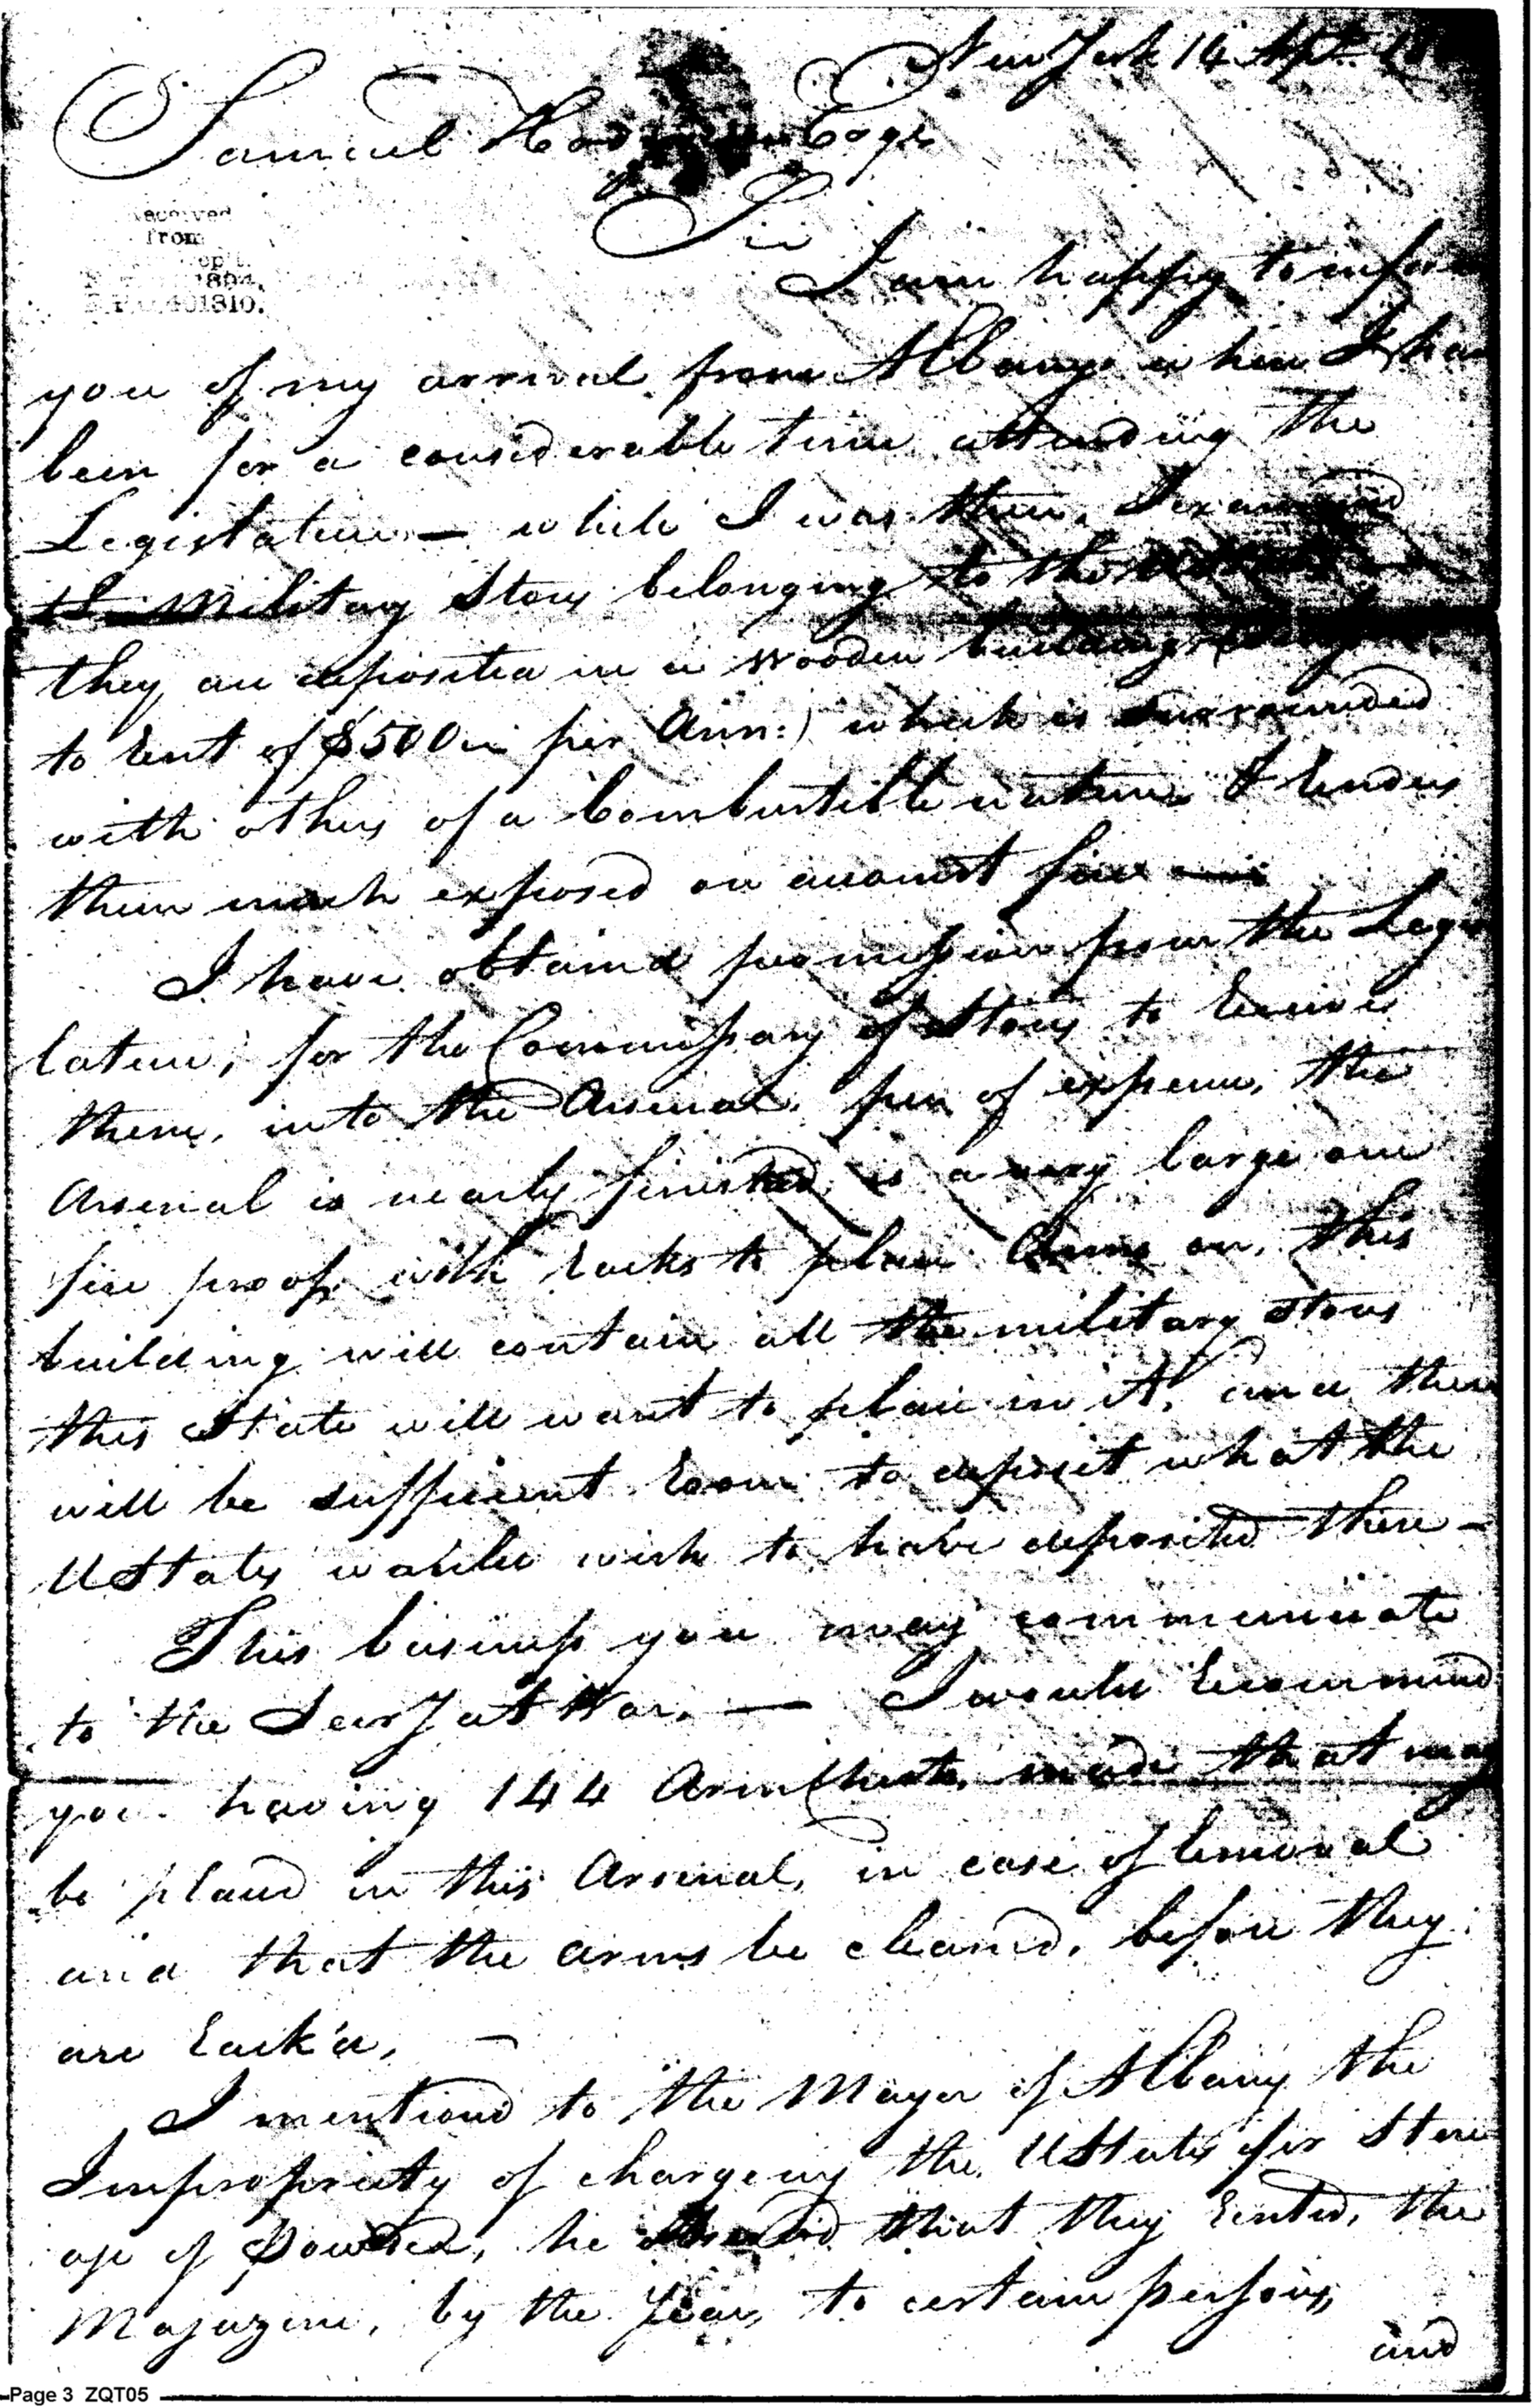 New York 14 Apl.
Samuel Hodgdon Esqr.
Sir
received
from
1894,
401810.
I am happy to inform
you of my arrival from Albany where I have
been for a considerable time attending the
Legislature — while I was there, I examined
the Military Stores belonging to the
they are deposited in a wooden building
to Rent of $500 per Ann:) which is surrounded
with others of a Combustible nature & renders
them much exposed on account fire
I have obtaind permission from the Legis
lature, for the Commissary of Stores to Receive
them, into the Arsenal, free of expence, the
Arsenal is nearly finished, is a very large one
fire proof, with Racks to place Arms on, this
building will contain all the military Stores
this State will want to place in it, and there
will be sufficient Room to deposit what the
UStates would wish to have deposited there —
This business you may communicate
to the Secry at War. — I would Recommend
you having 144 Arm Chests, made that may
be placed in this Arsenal, in case of Removal
and that the arms be cleaned, before they
are Rack'd, —
I mentiond to the Mayor of Albany the
Impropriety of chargeing the UStates for Stor
age of Powder, he observed that they Rented, the
Magazine, by the Year, to certain persons,
and
Page 3 ZQT05